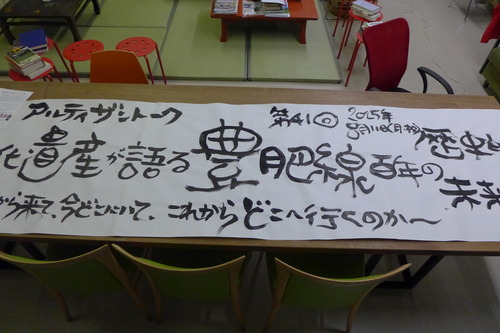 アルティザントーク 第 回 2015年 歴史と
化遺産が語る豊肥線百年の未来
から来て、今どこにいて、これからどこへ行くのか〜